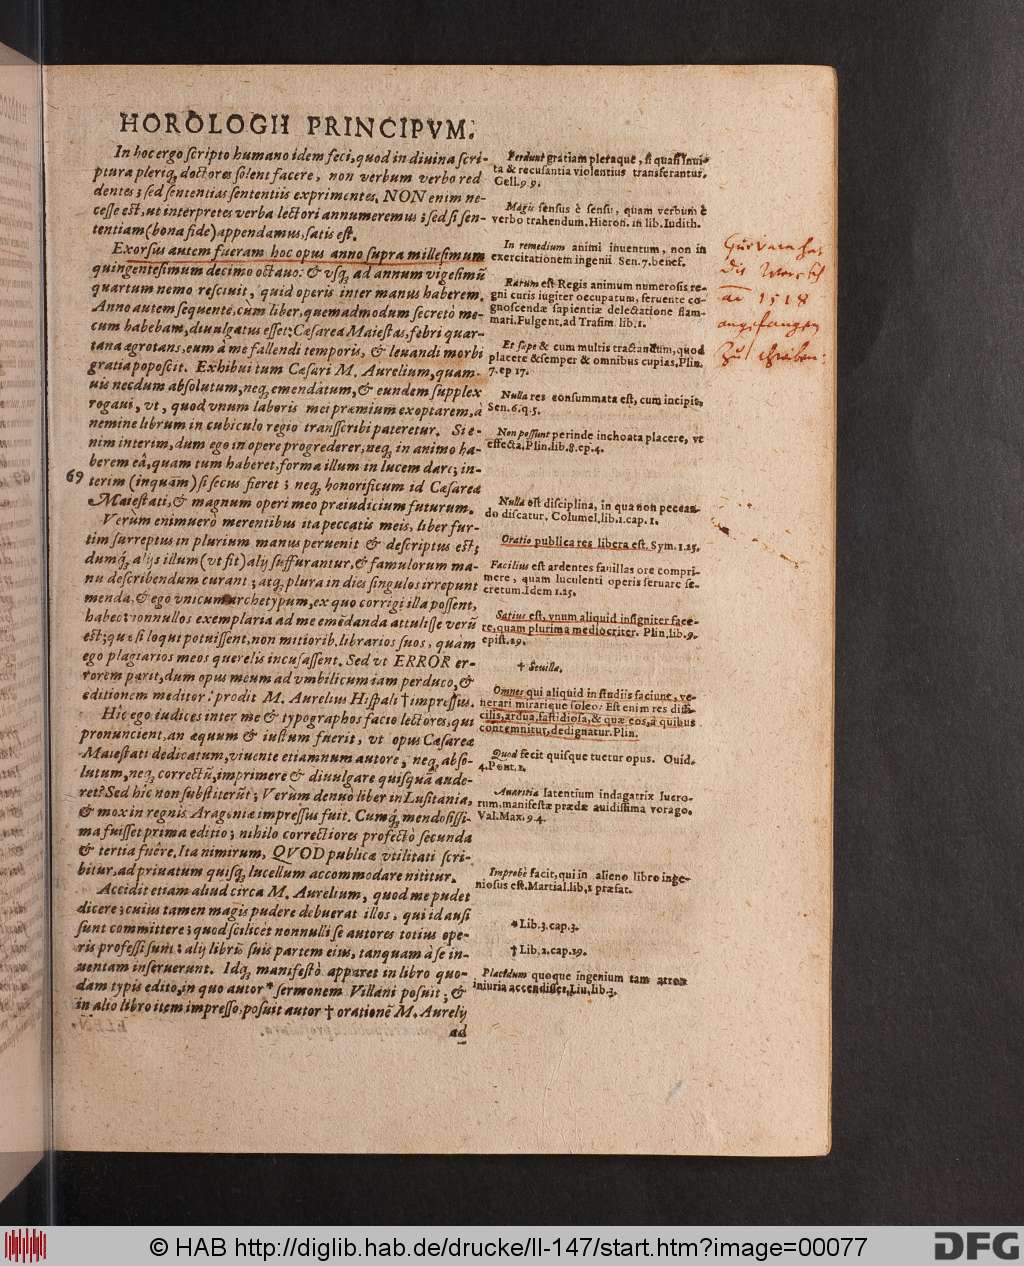 HOROLOGII PRINCIPVM.
In hoc ergo scripto humano idem feci, quod in diuina scri-
ptura pleriq; doctores solent facere, non verbum verbo red
dentes; sed sententias sententiis exprimentes. NON enim ne-
cesse est, ut interpretes verba lectori annumeremus; sed si sen-
tentiam (bona fide) appendamus, satis est.
Exorsus autem fueram hoc opus anno supra millesimum
quingentesimum decimo octauo: & vsq; ad annum vigesimũ
quartum nemo resciuit, quid operis inter manus haberem.
Anno autem sequente, cùm liber, quemadmodum secretò me-
cum habebam, diuulgatus esset: Cæsarea Maiestas, febri quar-
tana ægrotans, eum à me fallendi temporis, & leuandi morbi
gratia poposcit. Exhibui tum Cæsari M. Aurelium, quam-
uis necdum absolutum, neq; emendatum, & eundem supplex
rogaui, vt, quod vnum laboris mei præmium exoptarem, à
nemine librum in cubiculo regio transscribi pateretur. Si e-
nim interim, dum ego in opere progrederer, neq; in animo ha-
berem eâ, quam tum haberet, forma illum in lucem dare; in-
69
terim (inquam) si secus fieret; neq; honorificum id Cæsareæ
Maiestati, & magnum operi meo præiudicium futurum.
Verùm enimuerò merentibus ita peccatis meis, liber fur-
tim surreptus in plurium manus peruenit & descriptus est;
dumq; alijs illum (vt fit) alij suffurantur, & famulorum ma-
nu describendum curant; atq; plura in dies singulos irrepunt
menda, & ego vnicum archetypum, ex quo corrigi illa possent,
habeo: nonnullos exemplaria ad me emẽdanda attulisse verũ
est; quæ si loqui potuissent, non mitiorib. librarios suos, quàm
ego plagiarios meos querelis incusassent. Sed vt ERROR er-
rorem parit, dum opus meum ad vmbilicum iam perduco, &
editionem meditor: prodit M. Aurelius Hispali † impressus.
Hic ego iudices inter me & typographos facio lectores, qui
pronuncient, an æquum & iustum fuerit, vt opus Cæsareæ
Maiestati dedicatum, viuente etiamnum autore, neq; abso-
lutum, neq; correctũ, imprimere & diuulgare quisquã aude-
ret? Sed hîc non substiterũt; Verùm denuò liber in Lusitania,
& mox in regnis Aragoniæ impressus fuit. Cumq; mendosissi-
ma fuisset prima editio; nihilo correctiores profectò secunda
& tertia fuêre. Ita nimirum, QVOD publicæ vtilitati scri-
bitur, ad priuatum quisq; lucellum accommodare nititur.
Accidit etiam aliud circa M. Aurelium, quod me pudet
dicere; cuius tamen magis pudere debuerat illos, qui id ausi
sunt committere; quod scilicet nonnulli se autores totius ope-
ris professi sunt; alij libris suis partem eius, tanquam à se in-
uentam inseruerunt. Idq; manifestò apparet in libro quo-
dam typis edito, in quo autor * sermonem Villani posuit; &
in alio libro item impresso, posuit autor † orationẽ M. Aurelij
ad
Perdunt gratiam pleraque, si quasi inui-
ta & recusantia violentius transferantur.
Gell. 9 9.
Magis sensus è sensu, quam verbum è
verbo trahendum. Hieron. in lib. Iudith.
In remedium animi inuentum, non in
exercitationem ingenii Sen. 7. benef.
Rarum est Regis animum numerosis re-
gni curis iugiter occupatum, feruente co-
gnoscendæ sapientiæ delectatione flam-
mari. Fulgent. ad Trasim. lib. 1.
Et sæpe & cum multis tractandum, quod
placere & semper & omnibus cupias. Plin.
7. ep 17.
Nulla res consummata est, cum incipit.
Sen. 6. q. 5.
Non possunt perinde inchoata placere, vt
effecta. Plin. lib. 8. ep. 4.
Nulla est disciplina, in qua non peccan-
do discatur. Columel. lib. 1. cap. 1.
Oratio publica res libera est. Sym. 1.25.
Facilius est ardentes fauillas ore compri-
mere, quam luculenti operis seruare se-
cretum. Idem 1.25.
Satius est, vnum aliquid insigniter face-
re, quam plurima mediocriter. Plin. lib. 9.
epist. 29.
† Seuilla.
Omnes qui aliquid in studiis faciunt, ve-
nerari mirarique soleo: Est enim res diffi-
cilis, ardua, fastidiosa, & quæ eos, à quibus
contemnitur, dedignatur. Plin.
Quod fecit quisque tuetur opus. Ouid.
4. Pont. 1.
Auaritia latentium indagatrix lucro-
rum, manifestæ prædæ auidissima vorago.
Val. Max. 9 4.
Improbè facit, qui in alieno libro inge-
niosus est. Martial. lib. 1 præfat.
* Lib. 3. cap. 3.
† Lib. 2. cap. 29.
Placidum quoque ingenium tam atrox
iniuria accendisset. Liu. lib. 3.
hat
1518
angefangen
Zu schreiben:
© HAB http://diglib.hab.de/drucke/ll-147/start.htm?image=00077
DFG